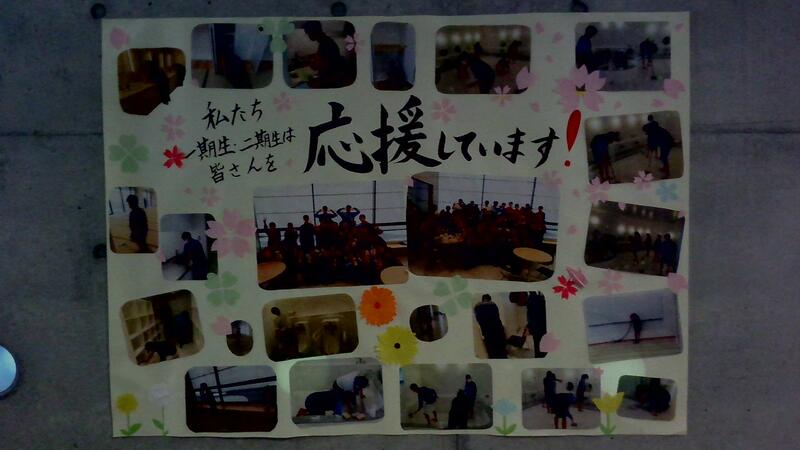 私たち
一期生・二期生は
皆さんを
応援しています!